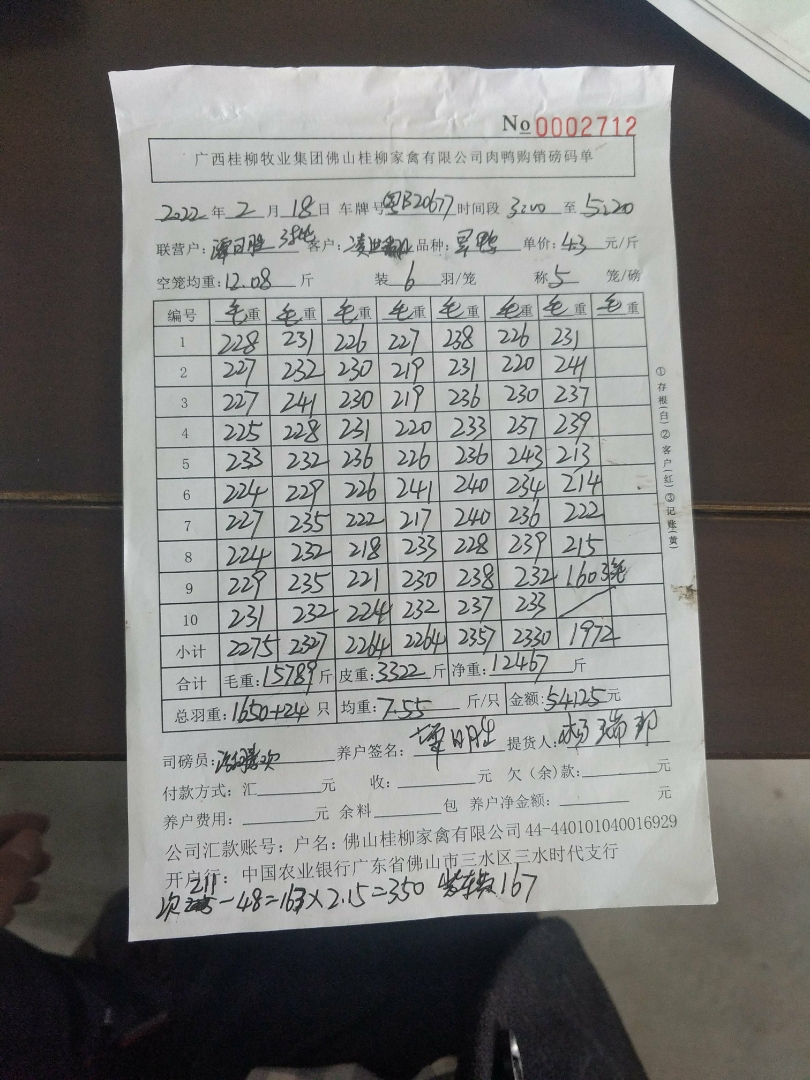 No 0002712
广西桂柳牧业集团佛山桂柳家禽有限公司肉鸭购销磅码单
2022 年 2 月 18 日 车牌号 粤B20677 时间段 3:00 至 5:20
联营户: 客户: 品种: 单价: 4.3 元/斤
空笼均重: 12.08 斤 装 6 羽/笼 称 5 笼/磅
编号 毛重 毛重 毛重 毛重 毛重 毛重 毛重 毛重
1 228 231 226 227 238 226 231
2 227 232 230 219 231 220 241
3 227 241 230 219 236 230 237
4 225 228 231 220 233 237 239
5 233 232 236 226 236 243 213
6 224 229 226 241 240 234 214
7 227 235 222 217 240 236 222
8 224 232 218 233 228 239 215
9 229 235 221 230 238 232 160 3笼
10 231 232 224 232 237 233
小计 2275 2327 2264 2264 2357 2330 1972
合计 毛重: 15789 斤 皮重: 3322 斤 净重: 12467 斤
总羽重: 1650+24 只 均重: 7.55 斤/只 金额: 54125 元
司磅员: 养户签名: 提货人: 杨瑞邦
付款方式: 汇 元 收: 元 欠(余)款: 元
养户费用: 元 余料 包 养户净金额: 元
公司汇款账号: 户名: 佛山桂柳家禽有限公司 44-440101040016929
开户行: 中国农业银行广东省佛山市三水区三水时代支行
次 211 -48=163×2.15=350 167
①存根(白)②客户(红)③记账(黄)